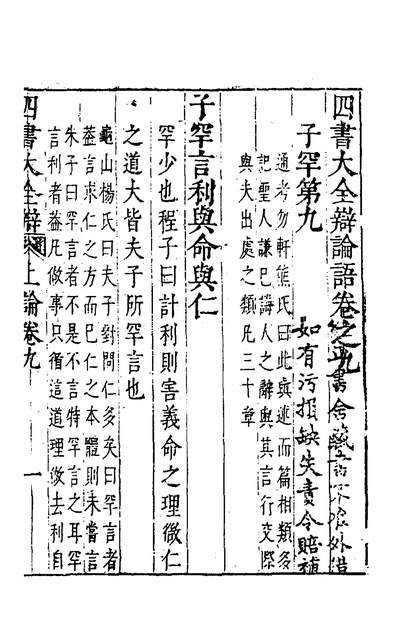 四書大全辯論語卷之九
書舍藏書不限外借
如有污損缺失責令賠補
子罕第九
通考勿軒熊氏曰此與述而篇相類多
記聖人謙己誨人之辭與其言行交際
與夫出處之類凡三十章
子罕言利與命與仁
罕少也程子曰計利則害義命之理微仁
之道大皆夫子所罕言也
龜山楊氏曰夫子對問仁多矣曰罕言者
葢言求仁之方而已仁之本體則未嘗言
朱子曰罕言者不是不言特罕言之耳罕
言利者葢凡做事只循這道理做去利自
四書大全辯 上論卷九 一